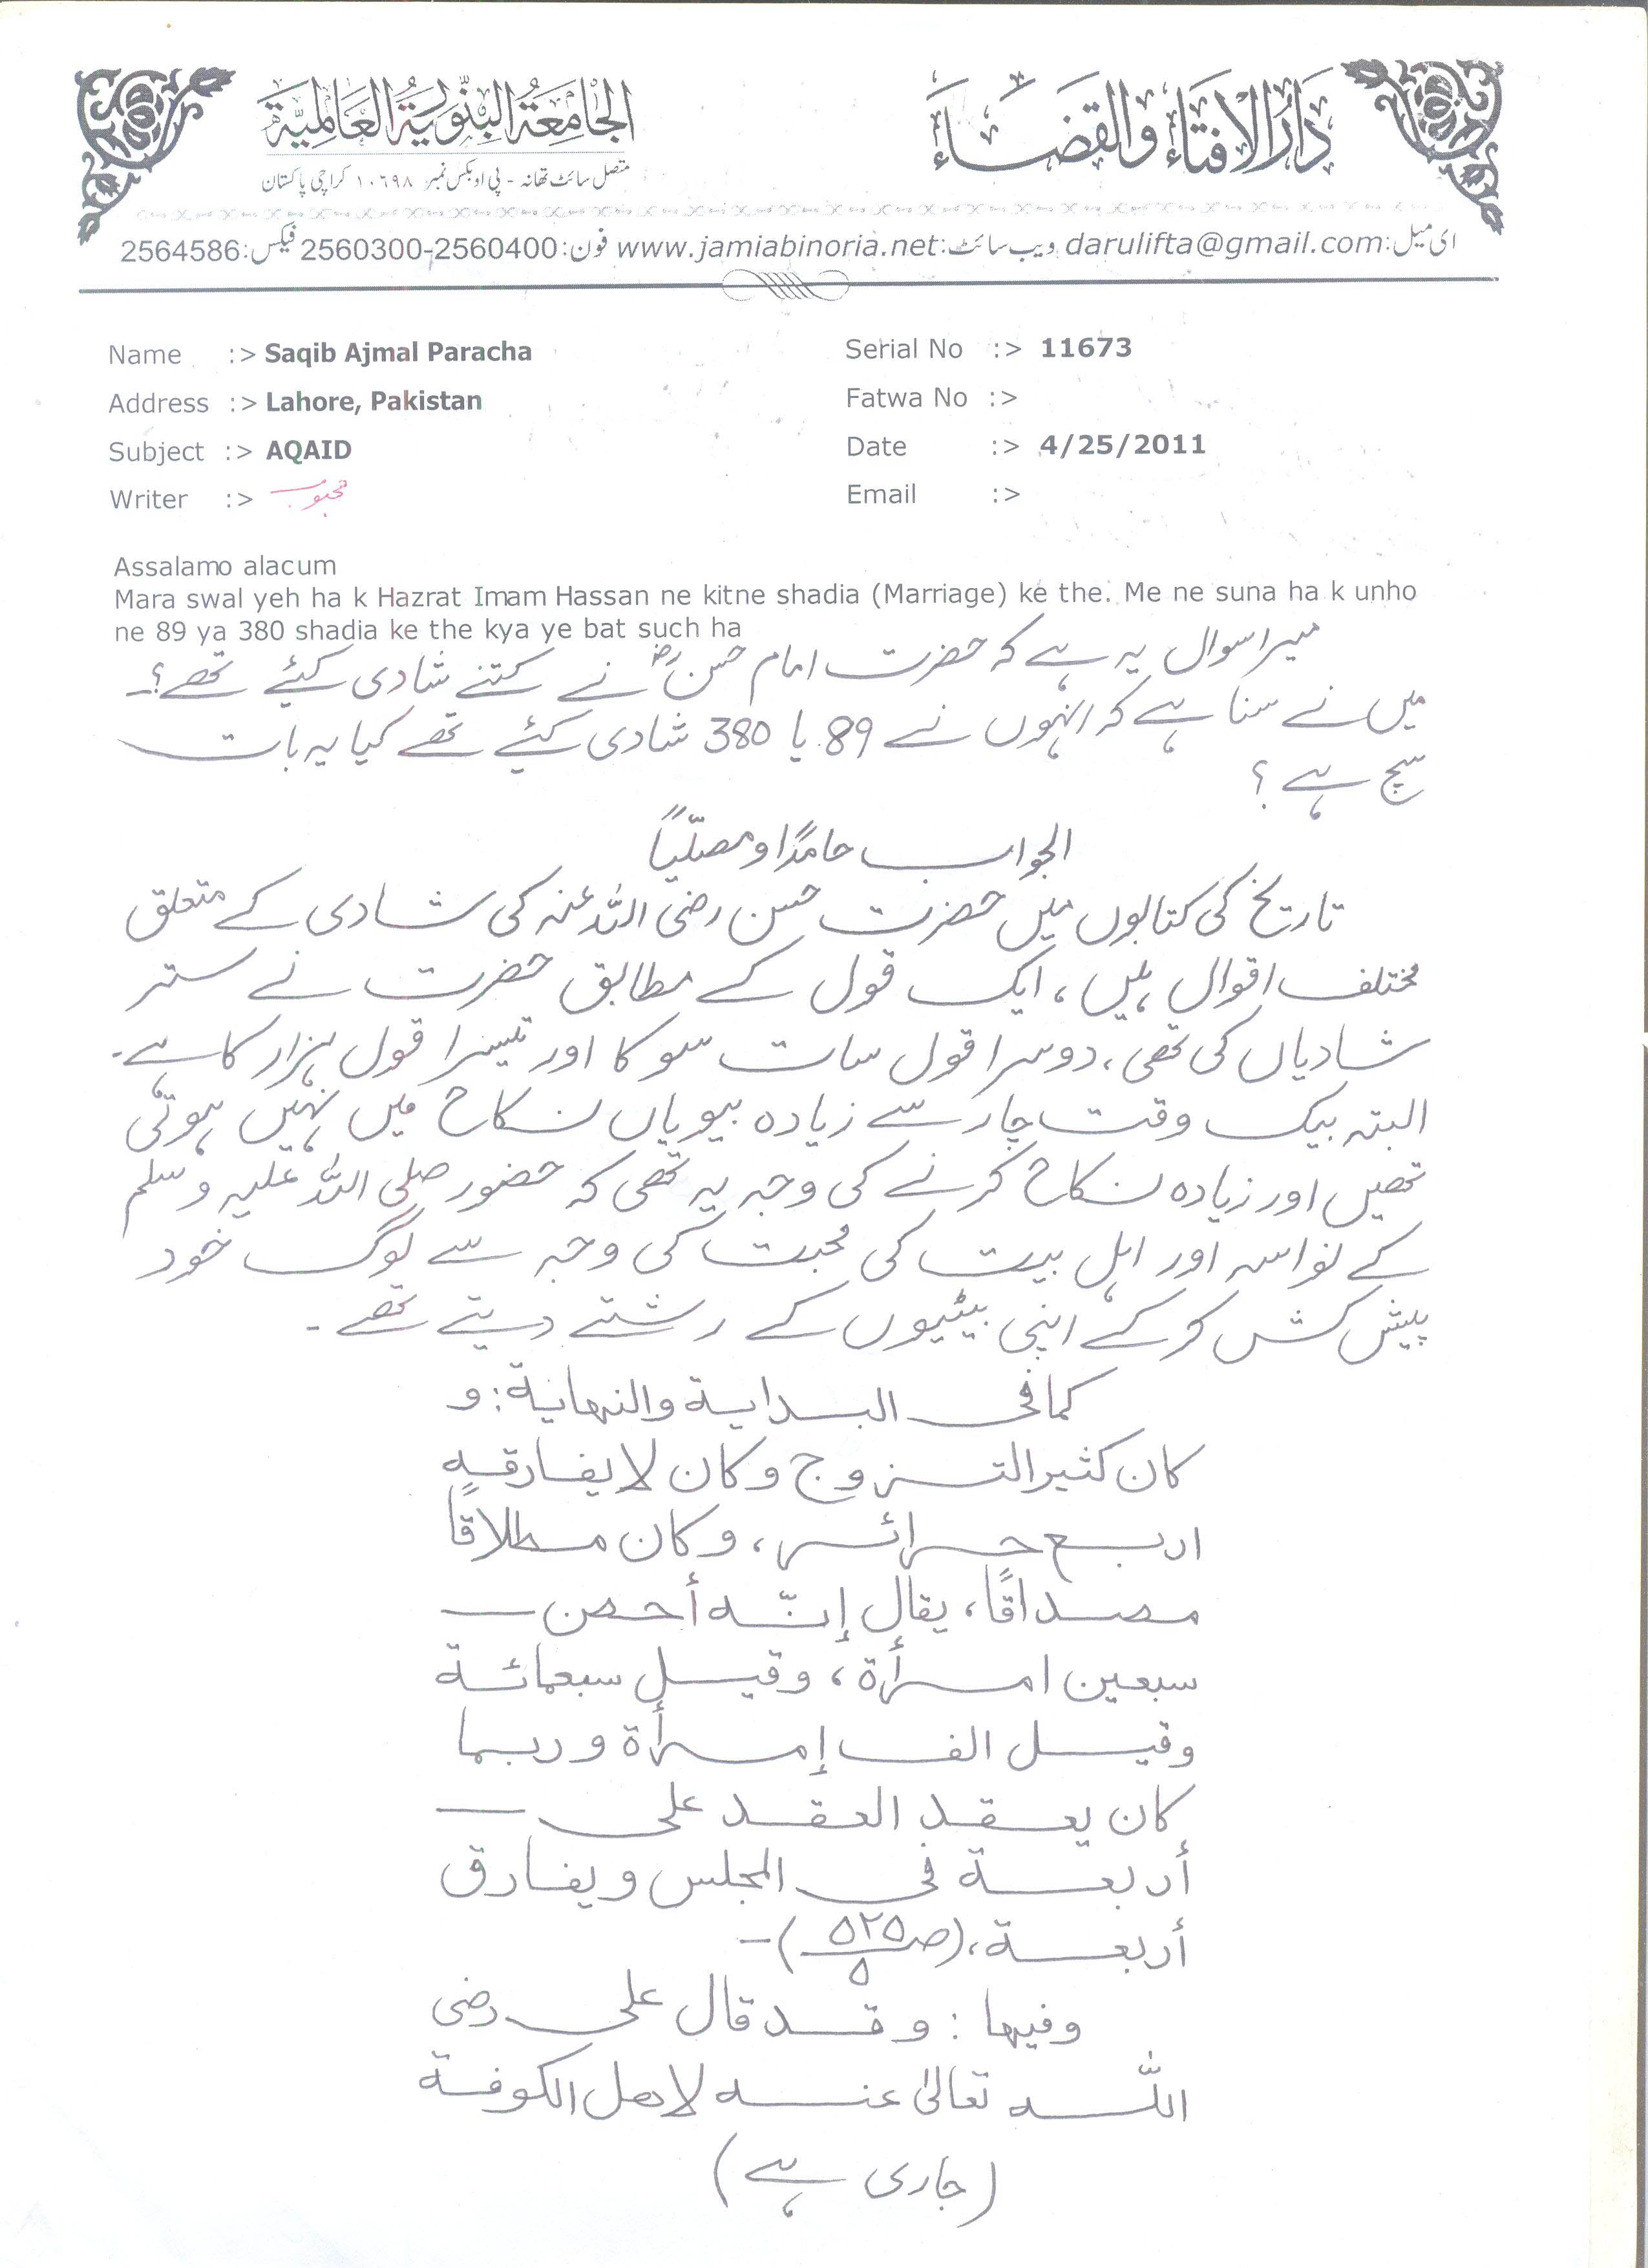 دَارُ الاِفتَاء وَالقَضَاء
الجَامِعَةُ البِنُّورِيَّةُ العَالَمِيَّة
متصل سائٹ تھانہ - پی او بکس نمبر ۱۰٦۹۸ کراچی پاکستان
ای میل: darulifta@gmail.com ویب سائٹ: www.jamiabinoria.net فون: 2560300-2560400 فیکس: 2564586
Name :> Saqib Ajmal Paracha Serial No :> 11673
Address :> Lahore, Pakistan Fatwa No :>
Subject :> AQAID Date :> 4/25/2011
Writer :> محبوب Email :>
Assalamo alacum
Mara swal yeh ha k Hazrat Imam Hassan ne kitne shadia (Marriage) ke the. Me ne suna ha k unho
ne 89 ya 380 shadia ke the kya ye bat such ha
میرا سوال یہ ہے کہ حضرت امام حسنؓ نے کتنے شادی کئے تھے؟
میں نے سنا ہے کہ انہوں نے 89 یا 380 شادی کئے تھے کیا یہ بات
سچ ہے ؟
الجواب حامدًا ومصلّیاً
تاریخ کی کتابوں میں حضرت حسن رضی اللہ عنہ کی شادی کے متعلق
مختلف اقوال ہیں، ایک قول کے مطابق حضرت نے ستر
شادیاں کی تھی، دوسرا قول سات سو کا اور تیسرا قول ہزار کا ہے۔
البتہ بیک وقت چار سے زیادہ بیویاں نکاح میں نہیں ہوتی
تھیں اور زیادہ نکاح کرنے کی وجہ یہ تھی کہ حضور صلی اللہ علیہ وسلم
کے نواسہ اور اہل بیت کی محبت کی وجہ سے لوگ خود
پیش کش کر کے اپنی بیٹیوں کے رشتے دیتے تھے ۔
کما فی البدایة والنھایة: و
کان کثیر التزوج وکان لا یفارقه
اربع حرائر، وکان مطلاقاً
مصداقًا، یقال إنّه أحصن
سبعین امرأة، وقیل سبعمائة
وقیل الف إمرأة وربما
کان یعقد العقد علی
أربعة فی المجلس ویفارق
أربعة، (ص ۵۲۵/۵)۔
وفیھا : وقد قال علی رضی
اللّٰه تعالیٰ عنه لاھل الکوفة
(جاری ہے)